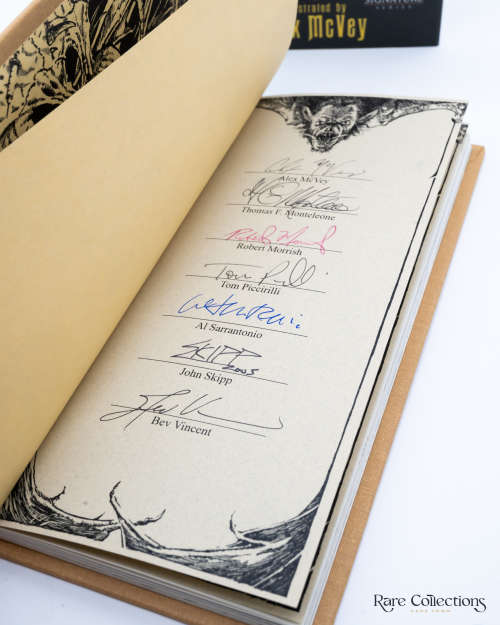 SIGNATURE
SERIES
McVey
Alex McVey
Thomas F. Monteleone
Robert Morrish
Tom Piccirilli
Al Sarrantonio
SKIPP
2005
John Skipp
Bev Vincent
Rare Collections
CAPE TOWN